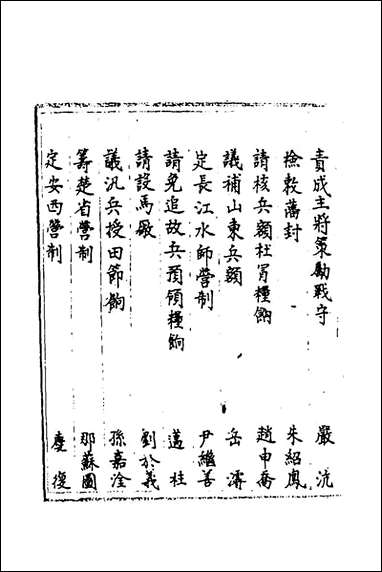 責成主將策勵戰守 嚴沆
檢斁藩封 朱紹鳳
請核兵額杜冐糧餉 趙申喬
議補山東兵額 岳濬
定長江水師營制 尹繼善
請免追故兵預領糧餉 邁柱
請設馬廠 劉於義
議汛兵授田節餉 孫嘉淦
籌楚省營制 那蘇圖
定安西營制 慶復